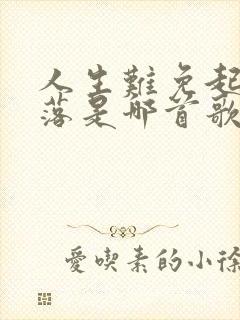 人生難免起
落是哪首歌
愛喫素的小徐